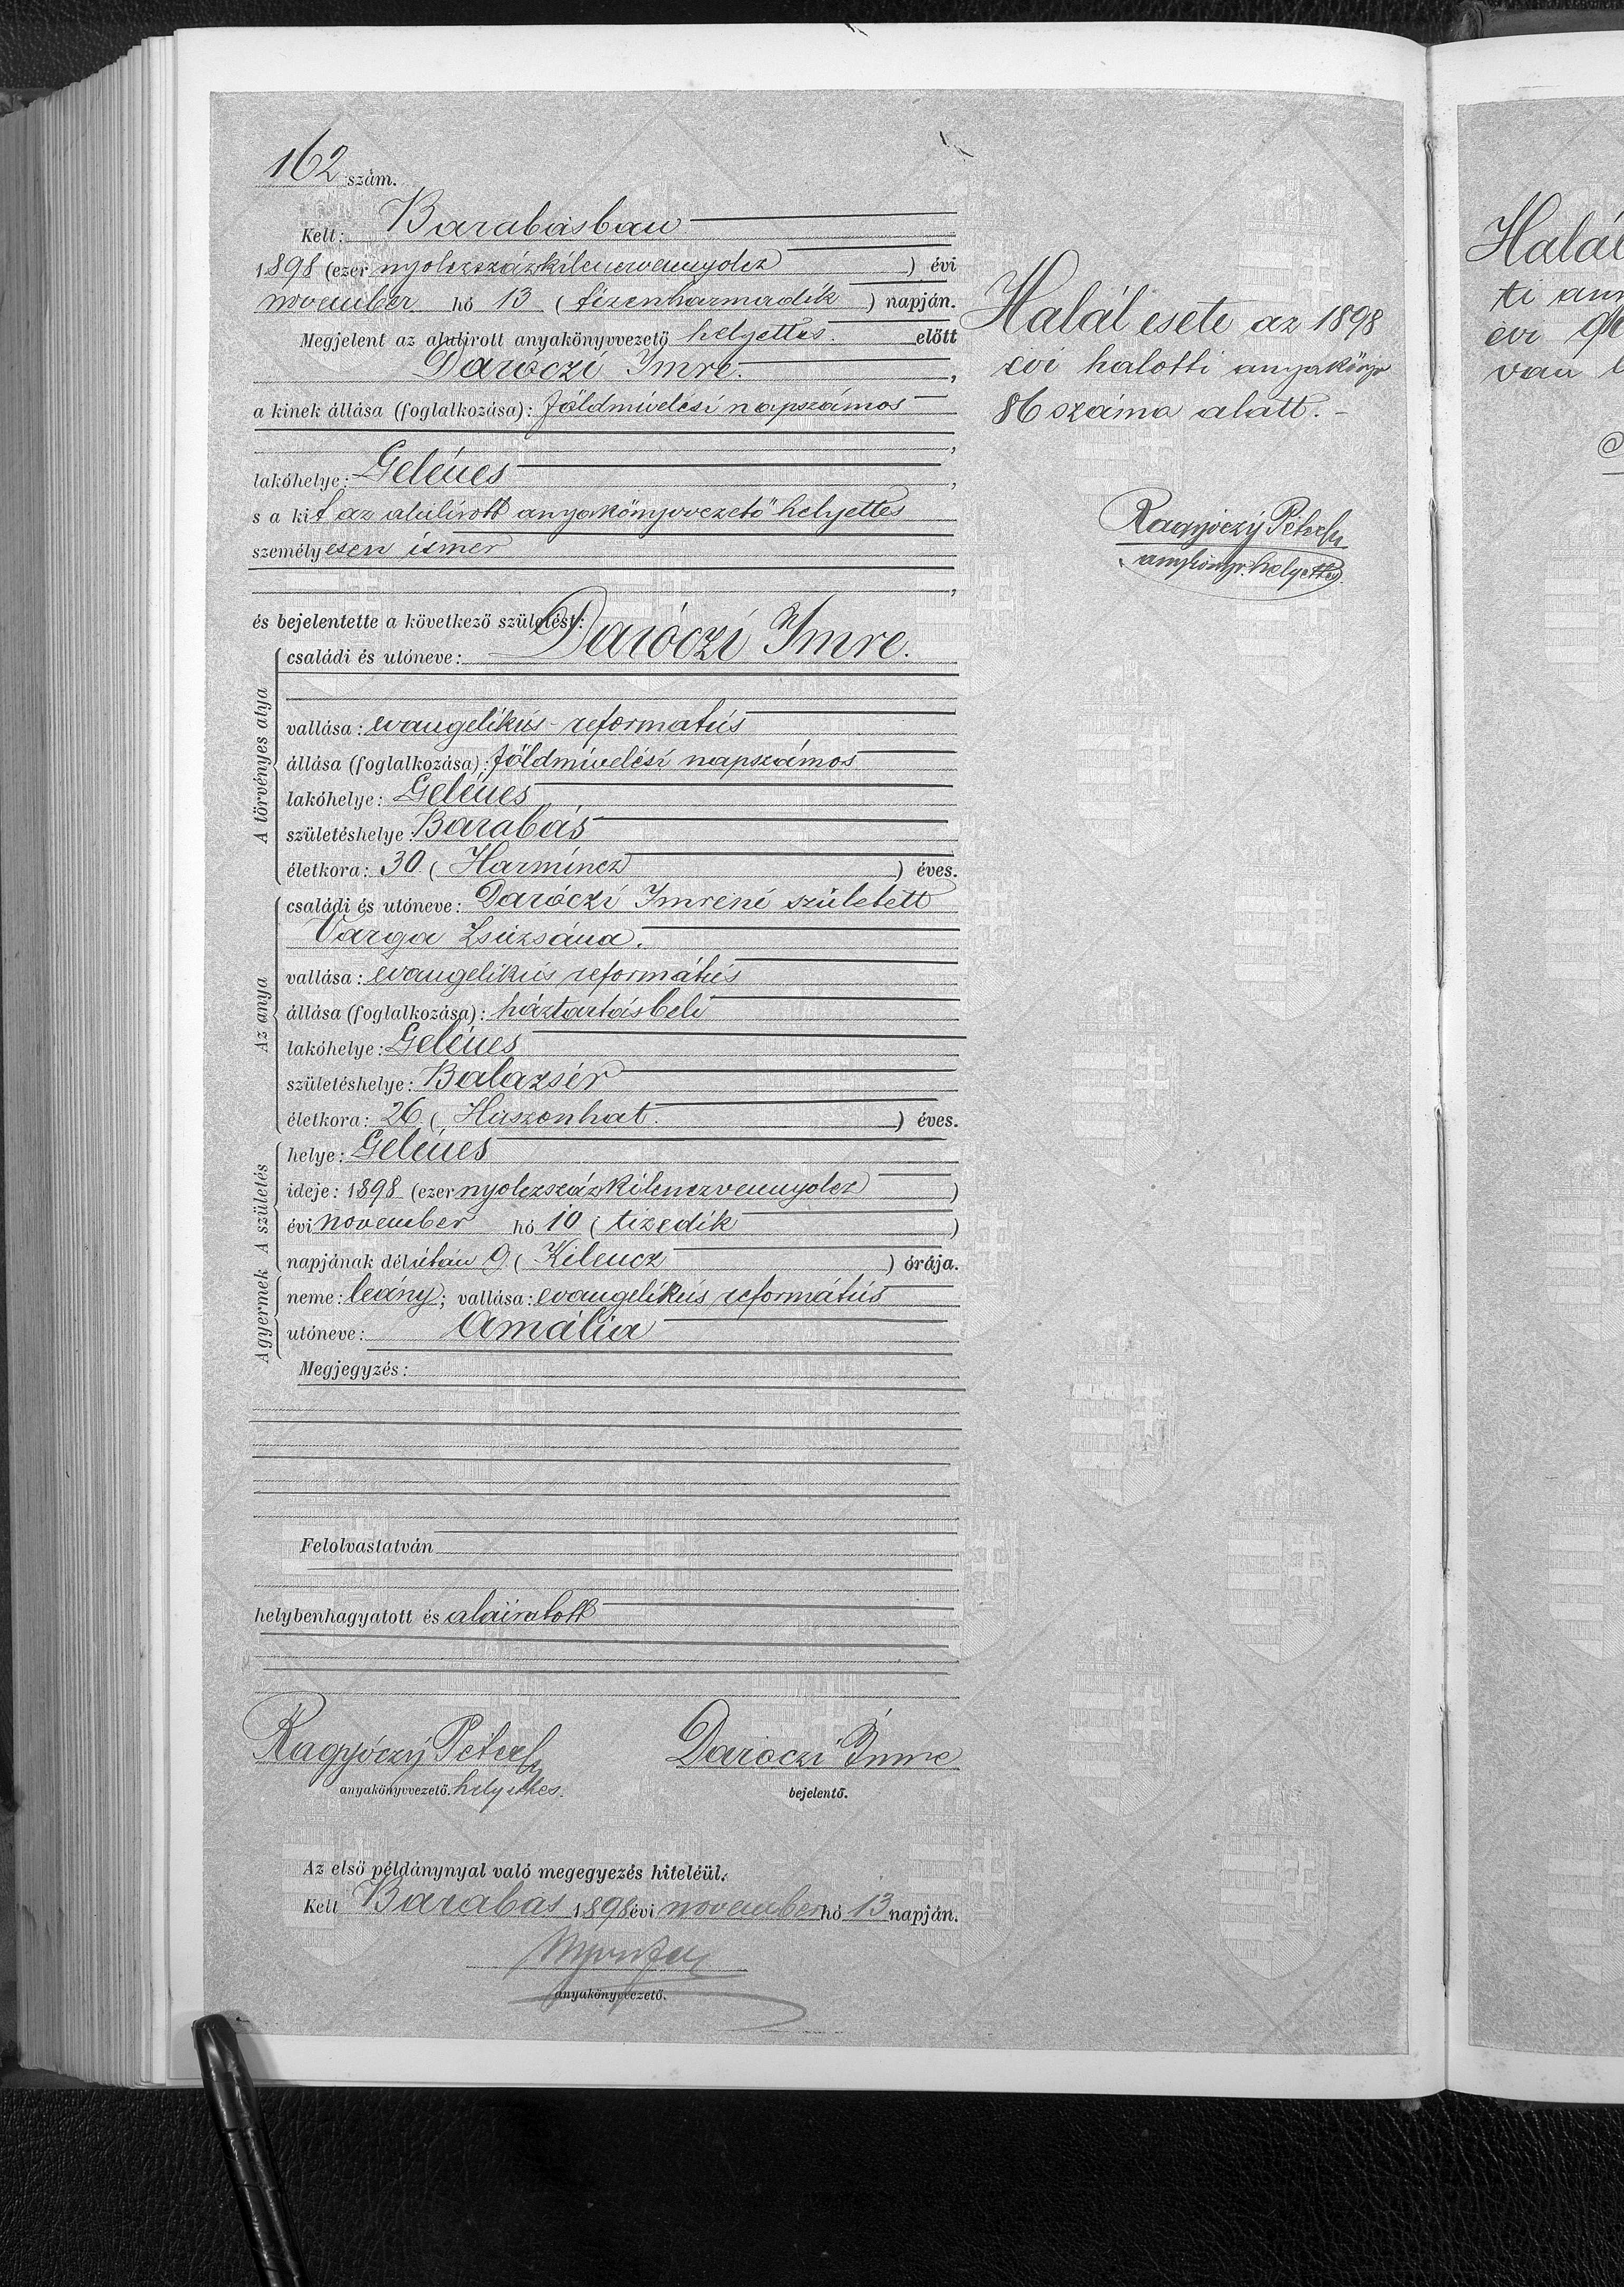 162 szám.
Kelt: Barabásban
1898 (ezer nyolczszázkilenczvennyolcz) évi
november hó 13 (tizenharmadik) napján.
Megjelent az alulirott anyakönyvvezető helyettes előtt
Daróczi Imre,
a kinek állása (foglalkozása): földmivelési napszámos
,
lakóhelye: Gelénes,
s a kit az alulirott anyakönyvvezető helyettes
személyesen ismer
,
és bejelentette a következő születést:
A törvényes atya
családi és utóneve: Daróczi Imre.
vallása: evangelikus-református
állása (foglalkozása): földmivelési napszámos
lakóhelye: Gelénes
születéshelye: Barabás
életkora: 30 (Harmincz) éves.
Az anya
családi és utóneve: Daróczi Imréné született
Varga Zsuzsána.
vallása: evangelikus református
állása (foglalkozása): háztartásbeli
lakóhelye: Gelénes
születéshelye: Balazsér
életkora: 26 (Huszonhat.) éves.
A születés
helye: Gelénes
ideje: 1898 (ezer nyolczszázkilenczvennyolcz)
évi november hó 10 (tizedik)
napjának délután 9 (Kilencz) órája.
A gyermek
neme: leány; vallása: evangelikus református
utóneve: Amália
Megjegyzés:
Felolvastatván
helybenhagyatott és aláiratott
Ragyóczy Péter
anyakönyvvezető. helyettes.
Daróczi Imre
bejelentő.
Az első példánynyal való megegyezés hiteléül.
Kelt Barabás 1898 évi november hó 13 napján.
anyakönyvvezető.
Halál esete az 1898
évi halotti anyakönyv
86 száma alatt.-
Ragyóczy Péter
anykönyv. helyettes.
Halál
ti any
évi
van